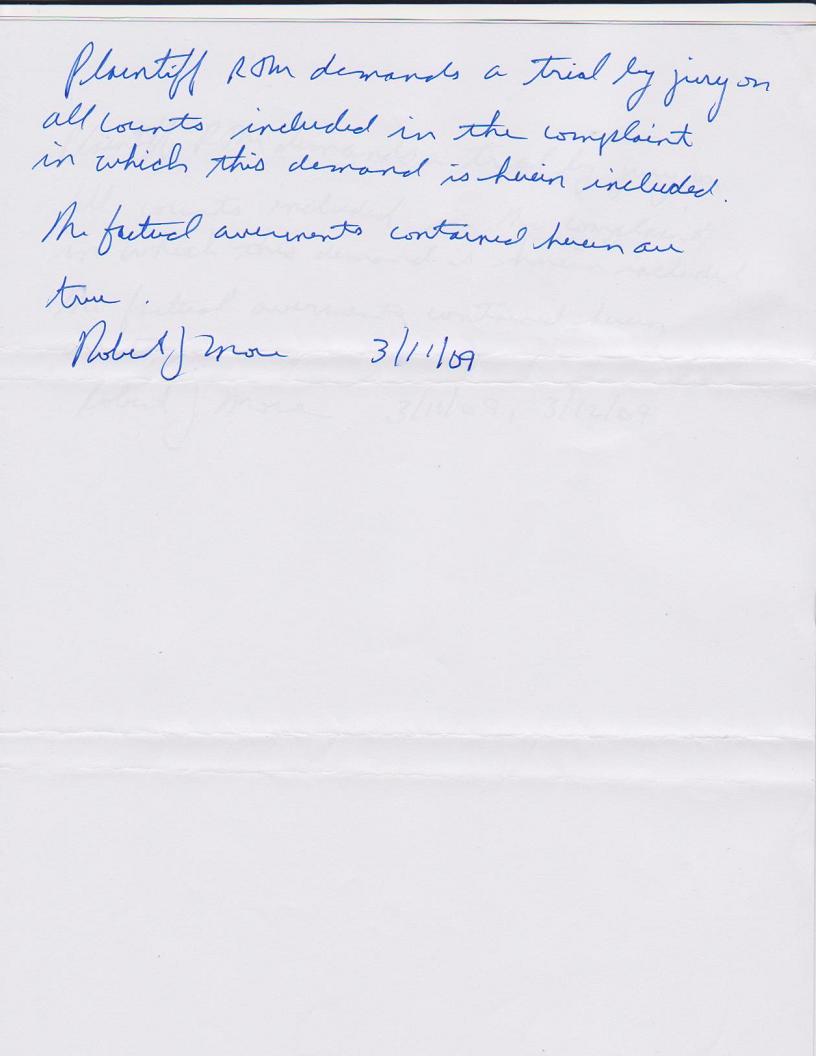 Plaintiff RJM demands a trial by jury on
all counts included in the complaint
in which this demand is herein included.
The factual averments contained herein are
true.
Robert J More 3/11/09